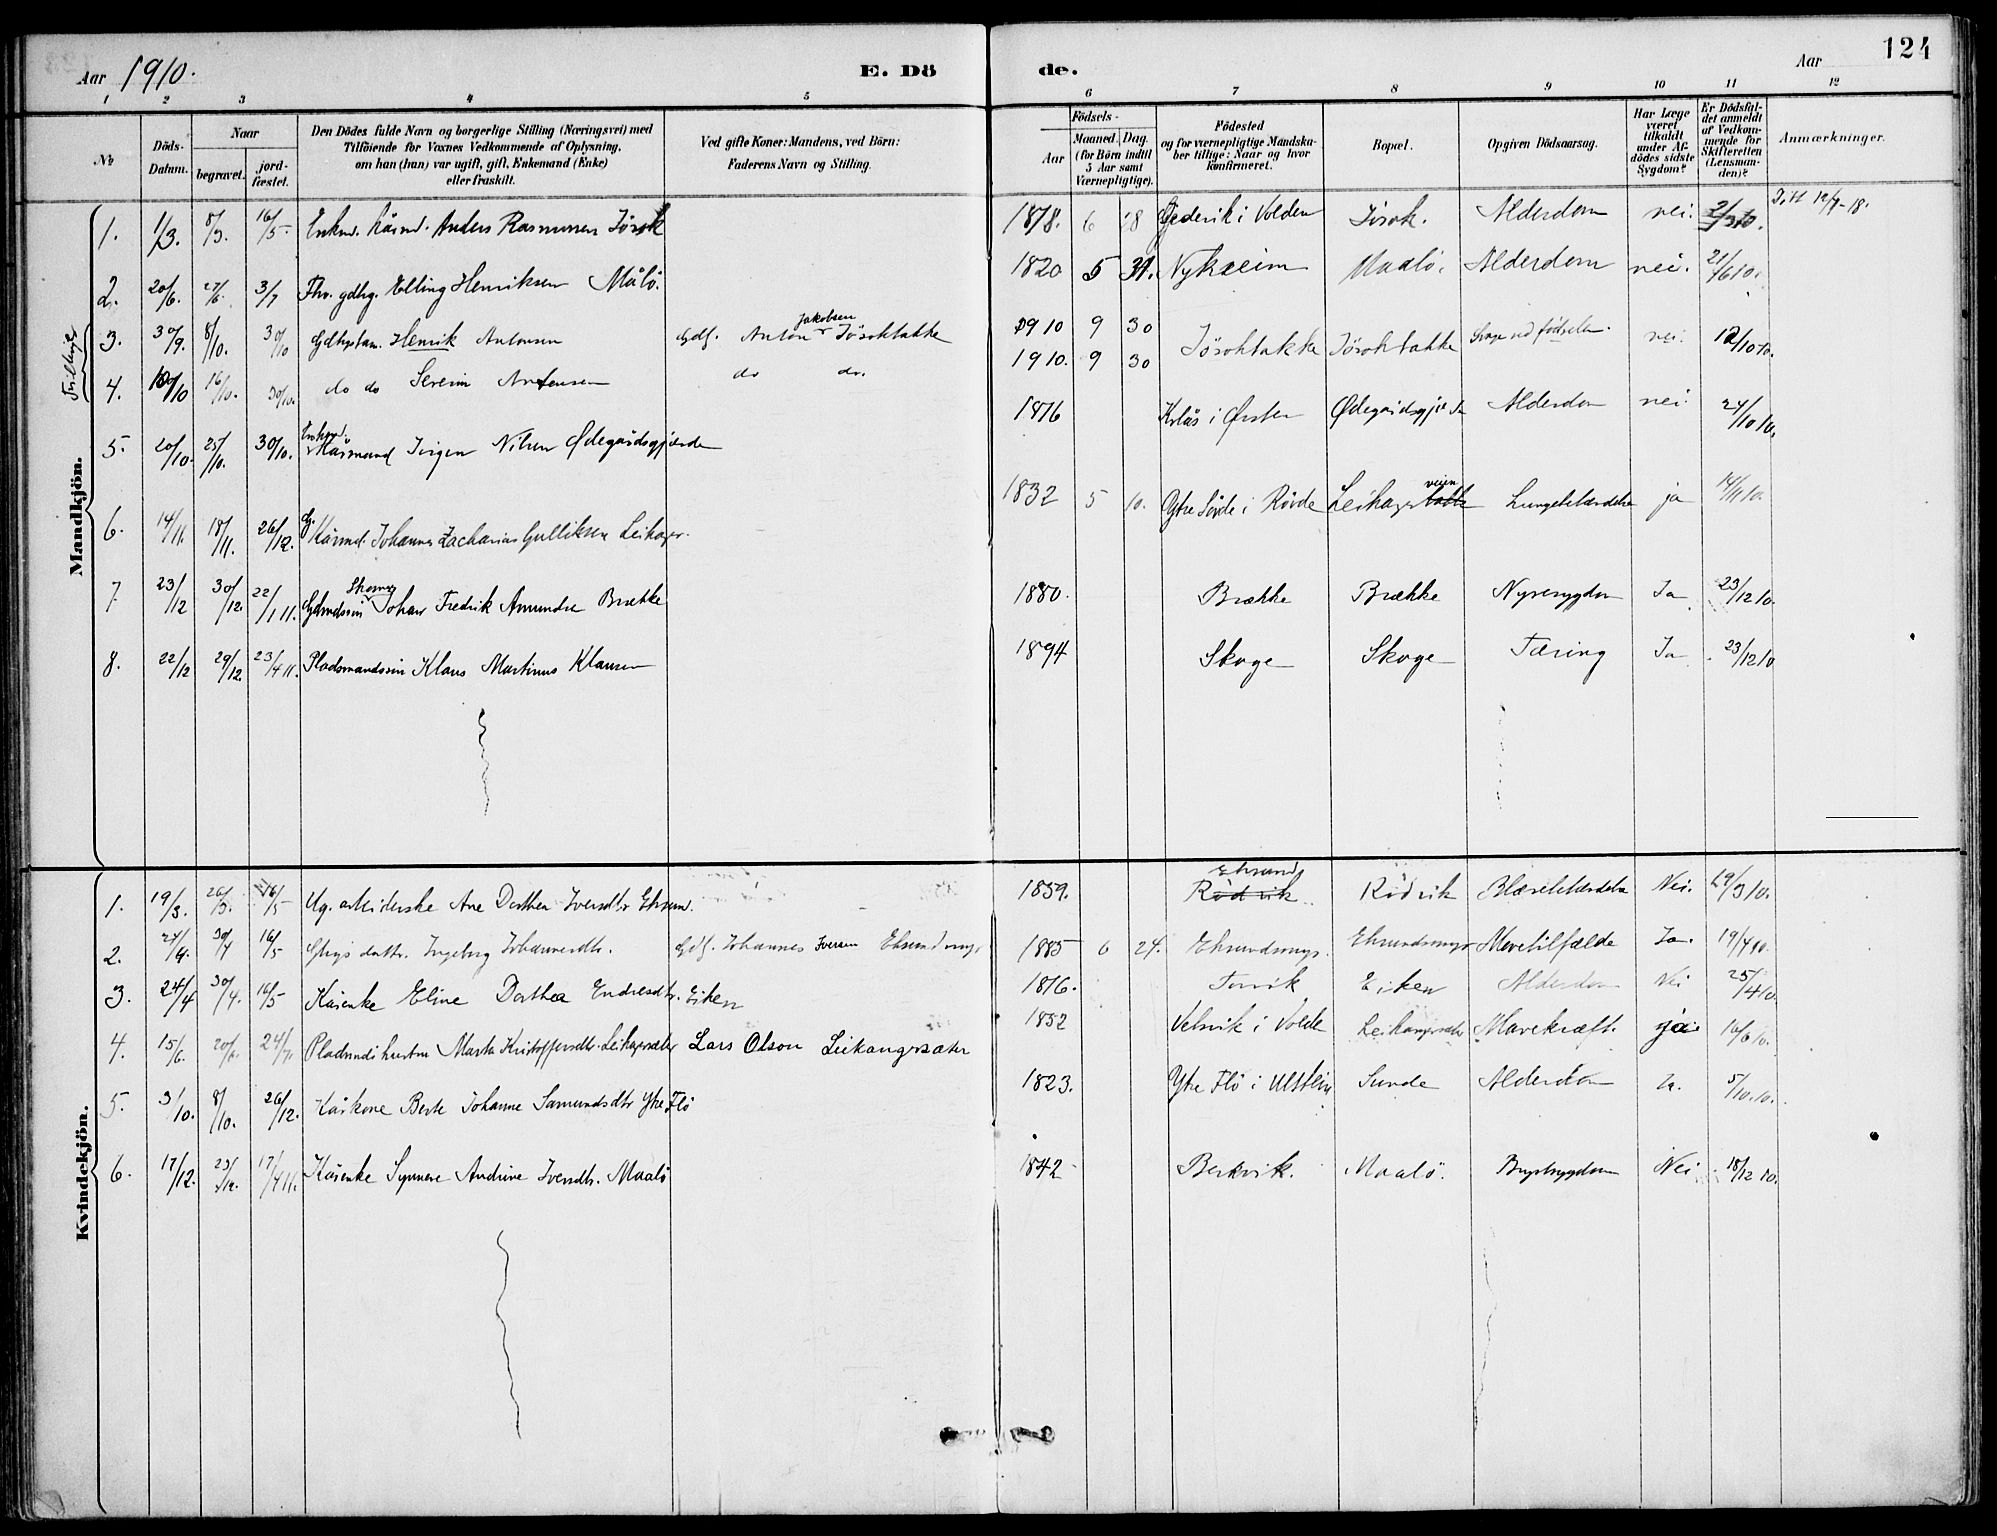 Aar 1910.
E. Dö
de.
Aar
124
1 2 3 4 5 6 7 8 9 10 11 12
No
Döds-Datum.
Naar
begravet.
jordfæstet.
Den Dödes fulde Navn og borgerlige Stilling (Næringsvei) med
Tilföiende for Voxnes Vedkommende af Oplysning,
om han (hun) var ugift, gift, Enkemand (Enke)
eller fraskilt.
Ved gifte Koner: Mandens, ved Börn:
Faderens Navn og Stilling.
Födsels-
Aar
Maaned. Dag.
(for Börn indtil
5 Aar samt
Værnepligtige).
Födested
og for værnepligtige Mandskaber tillige: Naar og hvor
Konfirmeret.
Bopæl.
Opgiven Dödsaarsag.
Har Læge
været
tilkaldt
under Afdödes sidste
Sygdom?
Er Dödsfaldet anmeldt
af Vedkommende for
Skifteretten
(Lensmanden)?
Anmærkninger.
Mandkjön.
1. 1/3. 8/3. 16/5. Enkm. Kårmd. Anders Rasmussen Jösok 1878. 6 18 i Volden Jösok. Alderdom nei. 2/3 10.
2. 20/6. 27/6. 3/7 Fhv. gdbg. Elling Henriksen Målö. 1820 5 31. Nykreim Maalö. Alderdom nei. 21/6 10.
Trillinger
3. 30/9. 8/10. 30/10 Henrik Antonsen Gdf. Anton Jakobsen Jösokbakke 1910 9 30 Jösokbakke Jösokbakke Svag ved födselen. nei. 12/10 10.
4. 10/10 16/10. 30/10. do do Severin Antonsen do do. 1910. 9 30
5. 20/10. 25/10. 30/10. Enkem. Kårmand Jörgen Nilsen Ødegårdsgjærde 1816 i Ørsten Ødegårdsgjerde Alderdom nei. 24/10 10.
6. 14/11. 18/11. 26/12. G. Kårmd. Johannes Zacharias Gulliksen Leikanger. 1832 5 10. Ytre Sörde i Rövde Leikanger veien Lungebetændelse ja 14/11 10.
7 23/12 30/12. 22/1 11. Gdmdssön Johan Fredrik Amundsen Brække 1880. Brække Brække Nyresygdom Ja 23/12 10.
8. 22/12 29/12. 23/4 11. Pladsmandssön Klaus Martinus Klausen 1894 Skoge Skoge Tæring Ja 23/12 10
Kvindekjön.
1. 19/3. 26/3. 16/5 Ug. arbeiderske Ane Dorthea Iversdtr. Eksund. 1839. Rödvik Eksund Rödvik Blærebetændelse Nei. 29/3 10.
2. 30/4 16/5 Ingeborg Johannesdtr. Gdf. Johannes Iversen 1885 6 24. Mavetilfælde Ja. 19/4 10.
3. 24/4 30/4. 16/5 Kårenke Eline Dorthea Endresdtr. Eiken 1816. Torvik Eiken Alderdom Nei 25/4 10.
4. 15/6. 20/6. 24/7. Pladsmdshustru Marta Kristoffersdtr. Leikangsæter Lars Olson Leikangsæter 1852 Velsvik i Volde Leikangersæter Mavekræft. ja 16/6 10.
5. 3/10. 8/10. 26/12. Kårkone Berte Johanne Samundsdtr. Ytre Flö 1823. Ytre Flö i Ulstein Sunde Alderdom Ja. 5/10 10.
6. 17/12. 23/12. 17/4 11. Kårenke Synnøve Andrine Iversdtr. Maalö 1842 Berkvik. Maalö. Brystsygdom Nei 18/12 10.